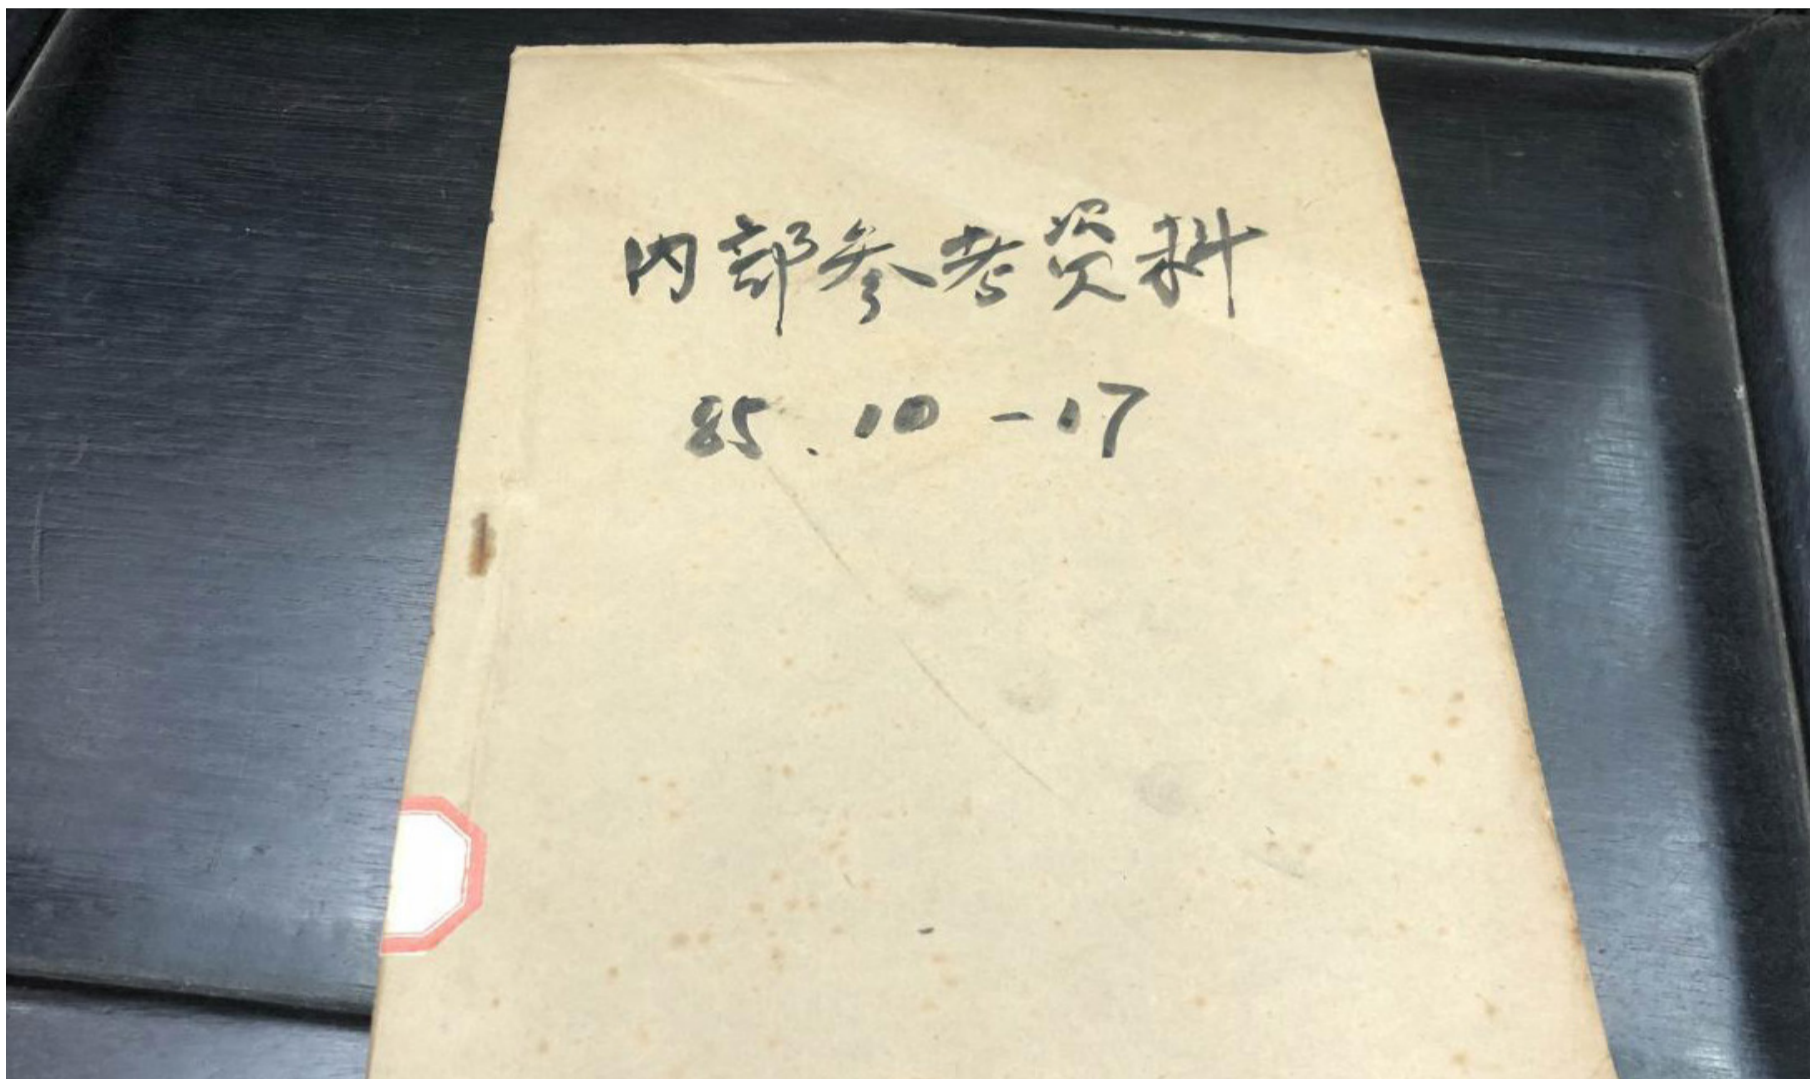 内部参考资料
85.10-17